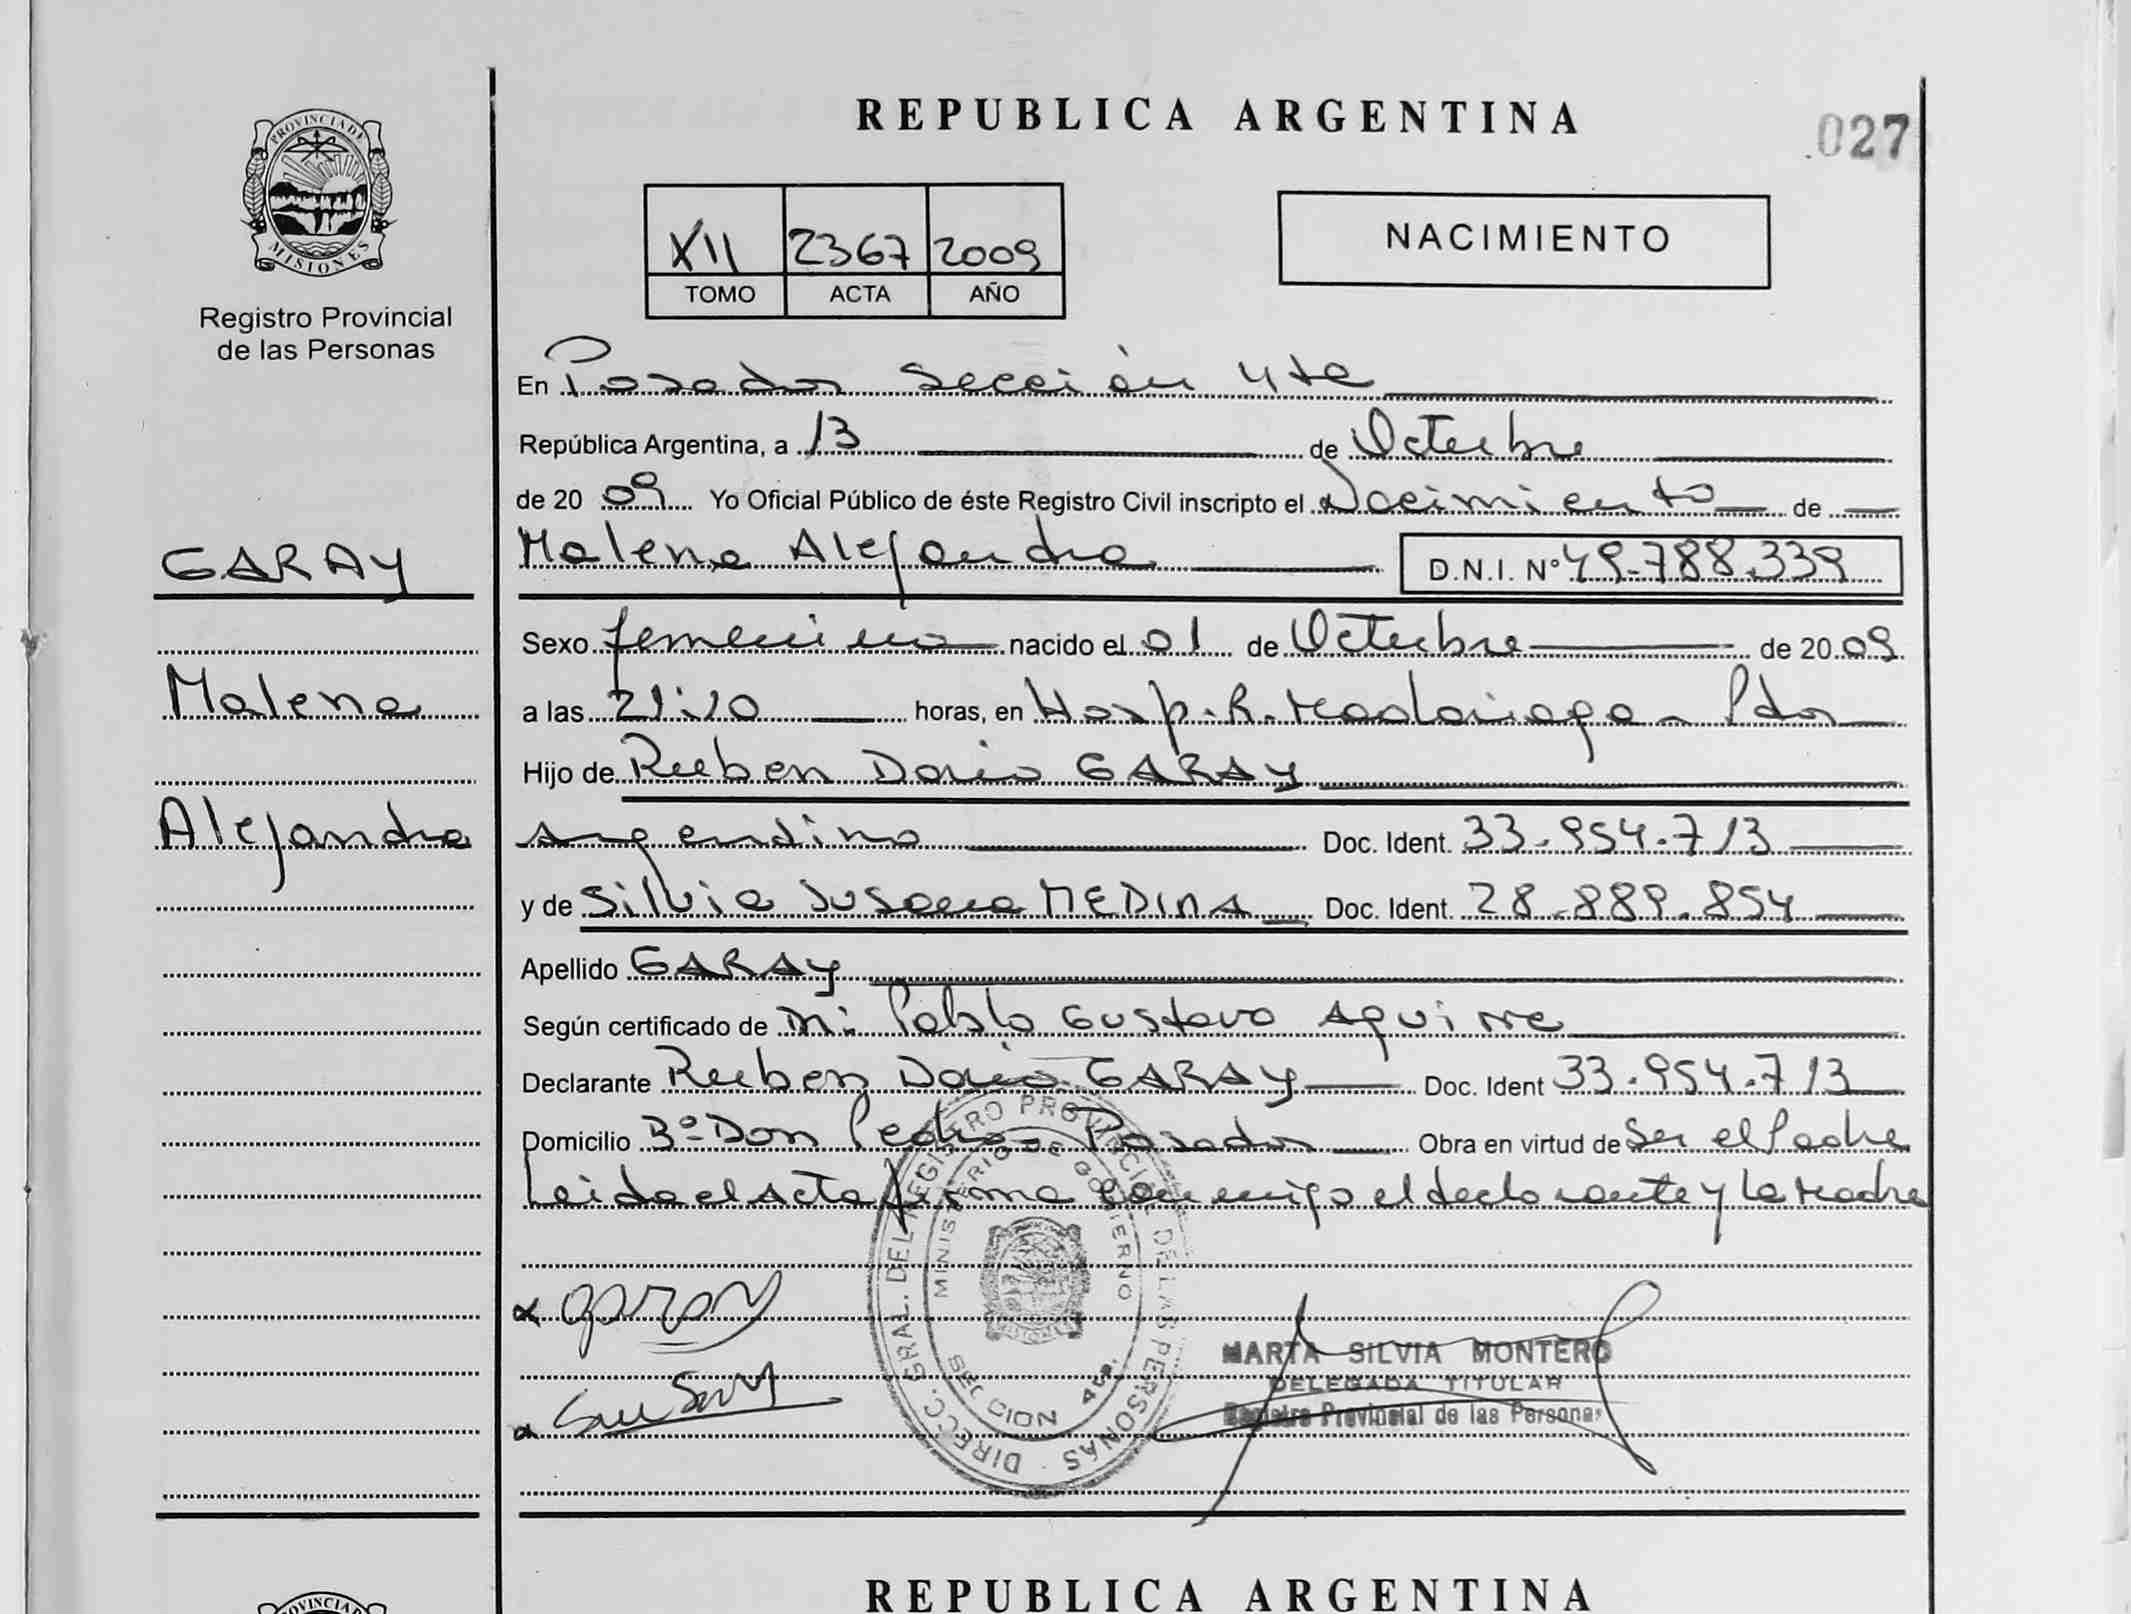 REPUBLICA ARGENTINA
027
PROVINCIA DE
MISIONES
Registro Provincial
de las Personas
XII 2367 2009
TOMO ACTA AÑO
NACIMIENTO
En Posadas Sección 4ta
República Argentina, a 13 de Octubre
de 20 09 Yo Oficial Público de éste Registro Civil inscripto el Nacimiento de
GARAY
Malena Alejandra D.N.I. Nº 49.788.339
Sexo femenino nacido el 01 de Octubre de 20 09
Malena
a las 21:10 horas, en Hosp. R. Madariaga - Pdas
Hijo de Ruben Dario GARAY
Alejandra
argentino Doc. Ident. 33.954.713
y de Silvia Susana MEDINA Doc. Ident. 28.889.854
Apellido GARAY
Según certificado de Dr: Pablo Gustavo Aguirre
Declarante Ruben Dario GARAY Doc. Ident 33.954.713
Domicilio Bº Don Pedro - Posadas Obra en virtud de Ser el Padre
Leida el Acta firma conmigo el declarante y la Madre
DIRECC. GRAL. DEL REGISTRO PROVINCIAL DE LAS PERSONAS
MINISTERIO DE GOBIERNO
MISIONES
SECCION 4ta.
garay
MARTA SILVIA MONTERO
DELEGADA TITULAR
Registro Provincial de las Personas
REPUBLICA ARGENTINA
PROVINCIA